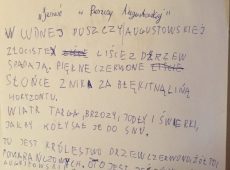 "Jesień w Puszczy Augustowskiej"
W CUDNEJ PUSZCZY AUGUSTOWSKIEJ
ZŁOCISTE LIŚCIE Z DRZEW
SPADAJĄ. PIĘKNE CZERWONE
SŁOŃCE ZNIKA ZA BŁĘKITNĄ LINIĄ
HORYZONTU.
WIATR TARGA BRZOZY, JODŁY I ŚWIERKI,
JAKBY KOŁYSAŁ JE DO SNU.
TU JEST KRÓLESTWO DRZEW CZERWONO ŻÓŁTO
POMARAŃCZOWYCH. OTO JEST
AUGUSTOWSKI